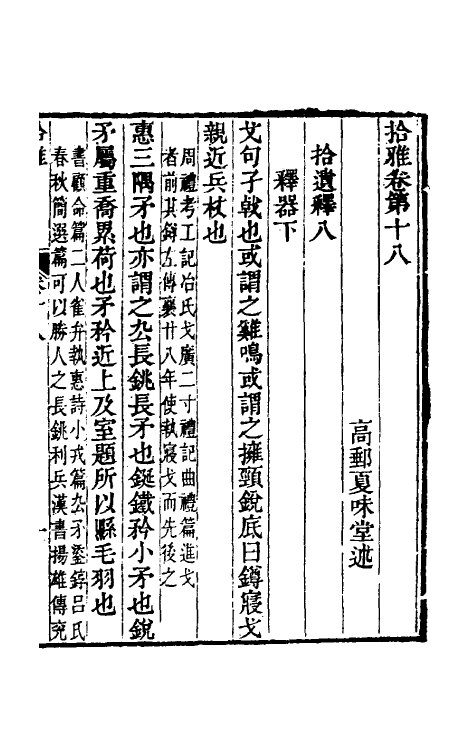 拾雅卷第十八
高郵夏味堂述
拾遺釋八
釋器下
戈句孑戟也或謂之雞鳴或謂之擁頸銳底曰鐏寢戈
親近兵杖也
周禮考工記冶氏戈廣二寸禮記曲禮篇進戈
者前其鐏左傳襄廿八年使執寢戈而先後之
惠三隅矛也亦謂之厹長銚長矛也鋋鐵矜小矛也銳
矛屬重喬累荷也矛矜近上及室題所以縣毛羽也
書顧命篇二人雀弁執惠詩小戎篇厹矛鋈錞呂氏
春秋簡選篇可以勝人之長銚利兵漢書揚雄傳兖